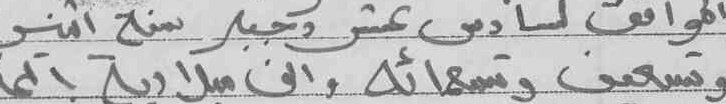 الموافق لسادس عشر دجنبر سنة اثنين
وتسعين وتسعمائة والف ميلادية